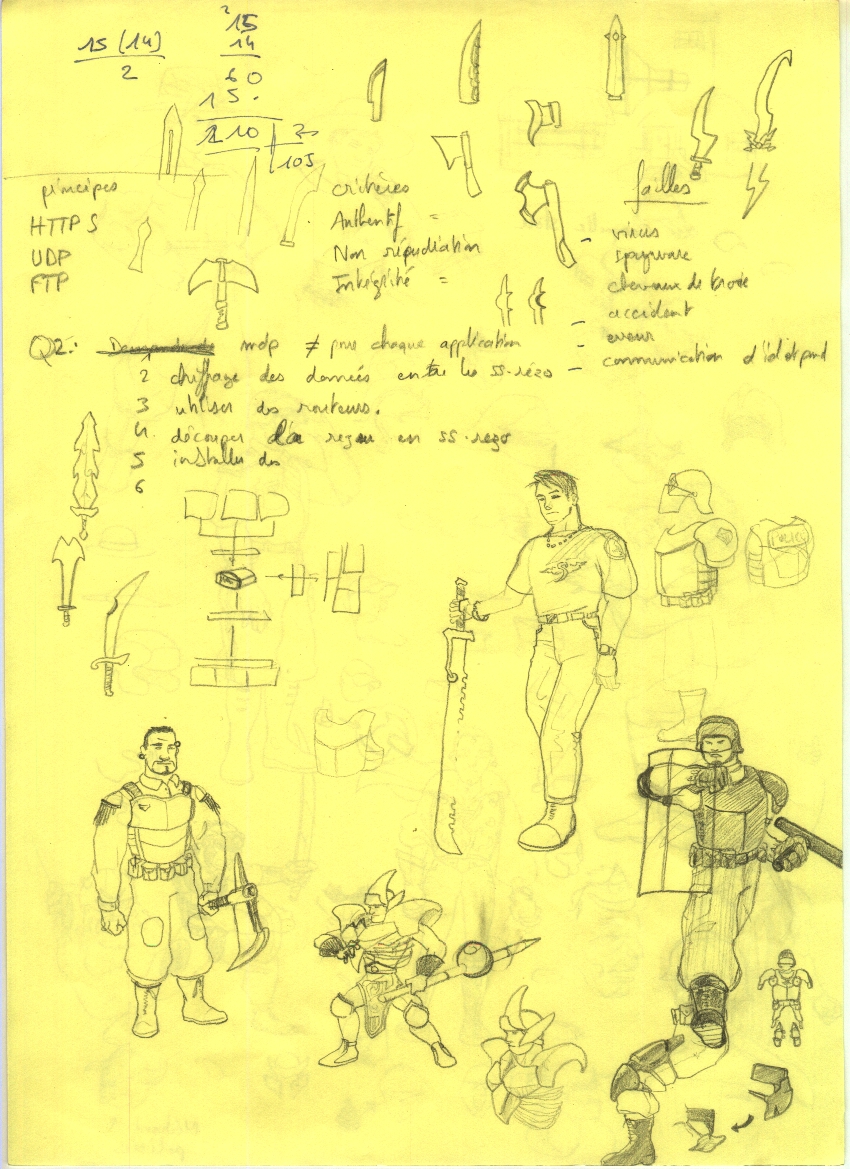 15 (14)
2
2
15
14
60
15.
210 2
105
principes
HTTPS
UDP
FTP
critères
Authentif =
Non répudiation
Intégrité =
failles
- virus
spyware
chevaux de troie
accident
- erreur
- communication d'id et pwd
Q2: mdp ≠ pour chaque application
1
2 chiffrage des données entre les ss-rézo
3 utiliser des routeurs.
4 découper un rezau en ss-rezo
5 installer des
6
POLICE